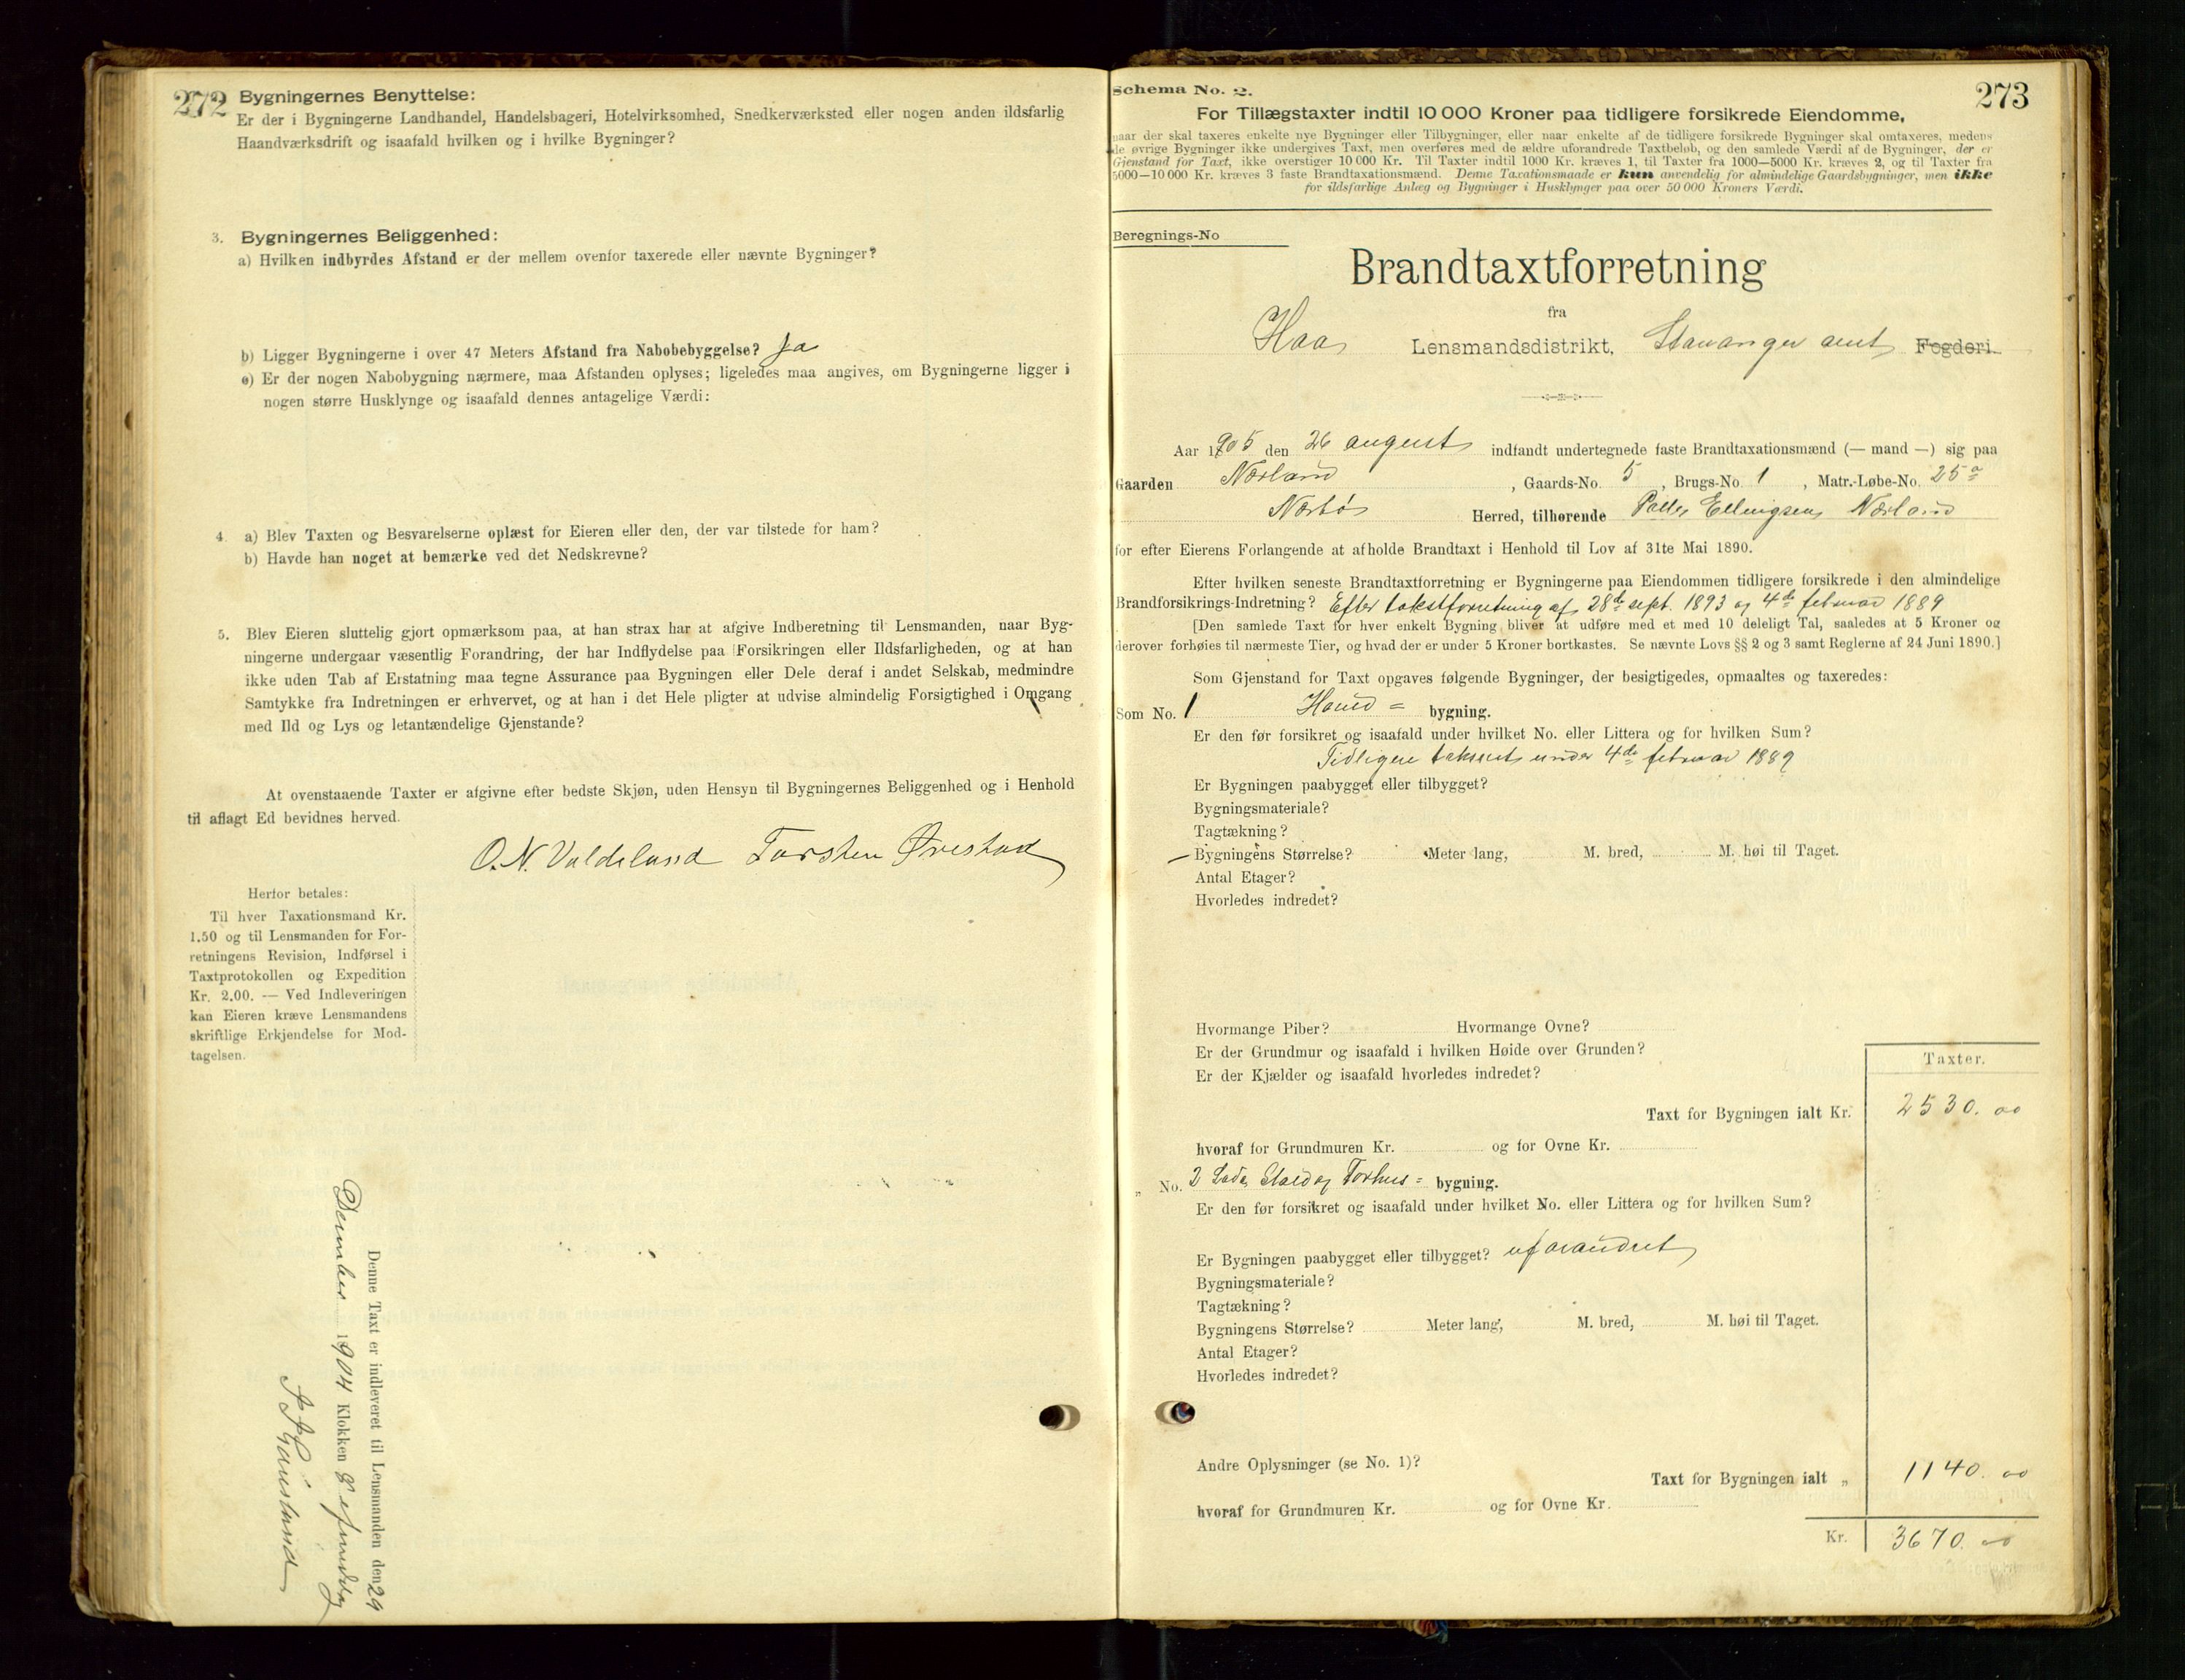 272
Bygningernes Benyttelse:
Er der i Bygningerne Landhandel, Handelsbageri, Hotelvirksomhed, Snedkerværksted eller nogen anden ildsfarlig
Haandværksdrift og isaafald hvilken og i hvilke Bygninger?
3. Bygningernes Beliggenhed:
a) Hvilken indbyrdes Afstand er der mellem ovenfor taxerede eller nævnte Bygninger?
b) Ligger Bygningerne i over 47 Meters Afstand fra Nabobebyggelse? Ja
c) Er der nogen Nabobygning nærmere, maa Afstanden oplyses; ligeledes maa angives, om Bygningerne ligger i
nogen større Husklynge og isaafald dennes antagelige Værdi:
4. a) Blev Taxten og Besvarelserne oplæst for Eieren eller den, der var tilstede for ham?
b) Havde han noget at bemærke ved det Nedskrevne?
5. Blev Eieren sluttelig gjort opmærksom paa, at han strax har at afgive Indberetning til Lensmanden, naar Byg-
ningerne undergaar væsentlig Forandring, der har Indflydelse paa Forsikringen eller Ildsfarligheden, og at han
ikke uden Tab af Erstatning maa tegne Assurance paa Bygningen eller Dele deraf i andet Selskab, medmindre
Samtykke fra Indretningen er erhvervet, og at han i det Hele pligter at udvise almindelig Forsigtighed i Omgang
med Ild og Lys og letantændelige Gjenstande?
At ovenstaaende Taxter er afgivne efter bedste Skjøn, uden Hensyn til Bygningernes Beliggenhed og i Henhold
til aflagt Ed bevidnes herved.
O. N. Valdeland Torsten Ørestad
Herfor betales:
Til hver Taxationsmand Kr.
1.50 og til Lensmanden for For-
retningens Revision, Indførsel i
Taxtprotokollen og Expedition
Kr. 2.00. — Ved Indleveringen
kan Eieren kræve Lensmandens
skriftlige Erkjendelse for Mod-
tagelsen.
Denne Taxt er indleveret til Lensmanden den 29
December 1904 Klokken 8
273
Schema No. 2.
For Tillægstaxter indtil 10 000 Kroner paa tidligere forsikrede Eiendomme,
naar der skal taxeres enkelte nye Bygninger eller Tilbygninger, eller naar enkelte af de tidligere forsikrede Bygninger skal omtaxeres, medens
de øvrige Bygninger ikke undergives Taxt, men overføres med de ældre uforandrede Taxtbeløb, og den samlede Værdi af de Bygninger, der er
Gjenstand for Taxt, ikke overstiger 10 000 Kr. Til Taxter indtil 1000 Kr. kræves 1, til Taxter fra 1000—5000 Kr. kræves 2, og til Taxter fra
5000—10 000 Kr. kræves 3 faste Brandtaxationsmænd. Denne Taxationsmaade er kun anvendelig for almindelige Gaardsbygninger, men ikke
for ildsfarlige Anlæg og Bygninger i Husklynger paa over 50 000 Kroners Værdi.
Beregnings-No
Brandtaxtforretning
fra
Haa Lensmandsdistrikt, Stavanger amt Fogderi.
Aar 1905 den 26 august indfandt undertegnede faste Brandtaxationsmænd (— mand —) sig paa
Gaarden Nærland, Gaards-No. 5, Brugs-No. 1, Matr.-Løbe-No. 25a
Nærbø Herred, tilhørende Palle Ellingsen Nærland
for efter Eierens Forlangende at afholde Brandtaxt i Henhold til Lov af 31te Mai 1890.
Efter hvilken seneste Brandtaxtforretning er Bygningerne paa Eiendommen tidligere forsikrede i den almindelige
Brandforsikrings-Indretning? Efter takstforretning af 28de sept. 1893 og 4de februar 1889
[Den samlede Taxt for hver enkelt Bygning bliver at udføre med et med 10 deleligt Tal, saaledes at 5 Kroner og
derover forhøies til nærmeste Tier, og hvad der er under 5 Kroner bortkastes. Se nævnte Lovs §§ 2 og 3 samt Reglerne af 24 Juni 1890.]
Som Gjenstand for Taxt opgaves følgende Bygninger, der besigtigedes, opmaaltes og taxeredes:
Som No. 1 = bygning.
Er den før forsikret og isaafald under hvilket No. eller Littera og for hvilken Sum?
Tidligere takseret under 4de februar 1889
Er Bygningen paabygget eller tilbygget?
Bygningsmateriale?
Tagtækning?
Bygningens Størrelse? Meter lang, M. bred, M. høi til Taget.
Antal Etager?
Hvorledes indredet?
Hvormange Piber? Hvormange Ovne?
Er der Grundmur og isaafald i hvilken Høide over Grunden?
Er der Kjælder og isaafald hvorledes indredet?
Taxter.
Taxt for Bygningen ialt Kr. 2530. 00
hvoraf for Grundmuren Kr. og for Ovne Kr.
„ No. 2 Lade, Stald og Torhus = bygning.
Er den før forsikret og isaafald under hvilket No. eller Littera og for hvilken Sum?
Er Bygningen paabygget eller tilbygget? uforandret
Bygningsmateriale?
Tagtækning?
Bygningens Størrelse? Meter lang, M. bred, M. høi til Taget.
Antal Etager?
Hvorledes indredet?
Andre Oplysninger (se No. 1)?
Taxt for Bygningen ialt „ 1140. 00
hvoraf for Grundmuren Kr. og for Ovne Kr.
Kr. 3670. 00